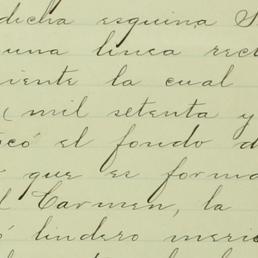 dicha esquina S
una linea rec
iente la cual
(mil setenta y
có el fondo d
que es forma
l Carmen, la
ó lindero meri